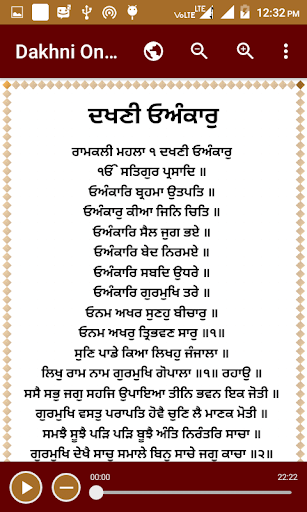 VoLTE LTE 12:32 PM
Dakhni On...
ਦਖਣੀ ਓਅੰਕਾਰੁ
ਰਾਮਕਲੀ ਮਹਲਾ ੧ ਦਖਣੀ ਓਅੰਕਾਰੁ
ੴ ਸਤਿਗੁਰ ਪ੍ਰਸਾਦਿ ॥
ਓਅੰਕਾਰਿ ਬ੍ਰਹਮਾ ਉਤਪਤਿ ॥
ਓਅੰਕਾਰੁ ਕੀਆ ਜਿਨਿ ਚਿਤਿ ॥
ਓਅੰਕਾਰਿ ਸੈਲ ਜੁਗ ਭਏ ॥
ਓਅੰਕਾਰਿ ਬੇਦ ਨਿਰਮਏ ॥
ਓਅੰਕਾਰਿ ਸਬਦਿ ਉਧਰੇ ॥
ਓਅੰਕਾਰਿ ਗੁਰਮੁਖਿ ਤਰੇ ॥
ਓਨਮ ਅਖਰ ਸੁਣਹੁ ਬੀਚਾਰੁ ॥
ਓਨਮ ਅਖਰੁ ਤ੍ਰਿਭਵਣ ਸਾਰੁ ॥੧॥
ਸੁਣਿ ਪਾਡੇ ਕਿਆ ਲਿਖਹੁ ਜੰਜਾਲਾ ॥
ਲਿਖੁ ਰਾਮ ਨਾਮ ਗੁਰਮੁਖਿ ਗੋਪਾਲਾ ॥੧॥ ਰਹਾਉ ॥
ਸਸੈ ਸਭੁ ਜਗੁ ਸਹਜਿ ਉਪਾਇਆ ਤੀਨਿ ਭਵਨ ਇਕ ਜੋਤੀ ॥
ਗੁਰਮੁਖਿ ਵਸਤੁ ਪਰਾਪਤਿ ਹੋਵੈ ਚੁਣਿ ਲੈ ਮਾਣਕ ਮੋਤੀ ॥
ਸਮਝੈ ਸੂਝੈ ਪੜਿ ਪੜਿ ਬੂਝੈ ਅੰਤਿ ਨਿਰੰਤਰਿ ਸਾਚਾ ॥
ਗੁਰਮੁਖਿ ਦੇਖੈ ਸਾਚੁ ਸਮਾਲੇ ਬਿਨੁ ਸਾਚੇ ਜਗੁ ਕਾਚਾ ॥੨॥
00:00 22:22